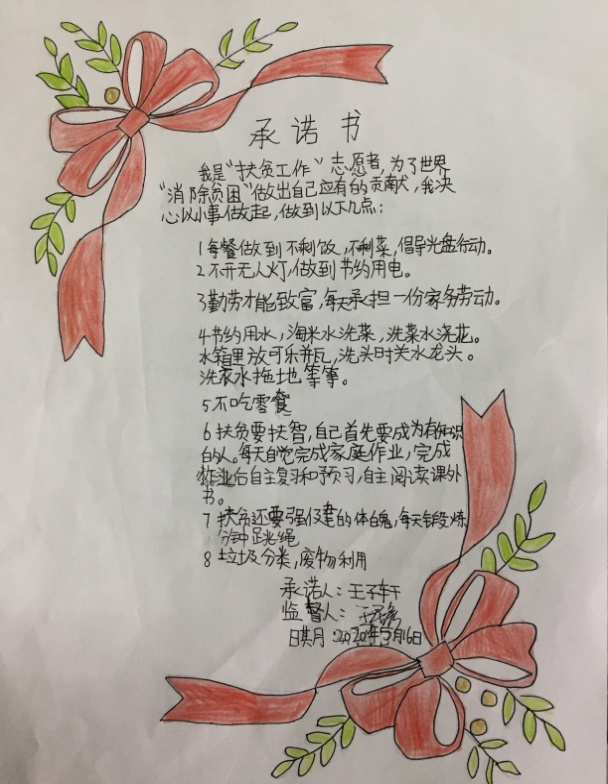 承诺书
我是“扶贫工作”志愿者,为了世界
“消除贫困”做出自己应有的贡献,我决
心从小事做起,做到以下几点:
1每餐做到不剩饭,不剩菜,倡导光盘行动。
2不开无人灯,做到节约用电。
3勤劳才能致富,每天承担一份家务劳动。
4节约用水,淘米水洗菜,洗菜水浇花。
水箱里放可乐瓶,洗头时关水龙头。
洗衣水拖地等等。
5不吃零食
6扶贫要扶智,自己首先要成为有知识
的人。每天自觉完成家庭作业,完成
作业后自主复习和预习,自主阅读课外
书。
7扶贫还要强健的体魄,每天锻炼
分钟跳绳
8垃圾分类,废物利用
承诺人:王子轩
监督人:
日期:2020年5月16日